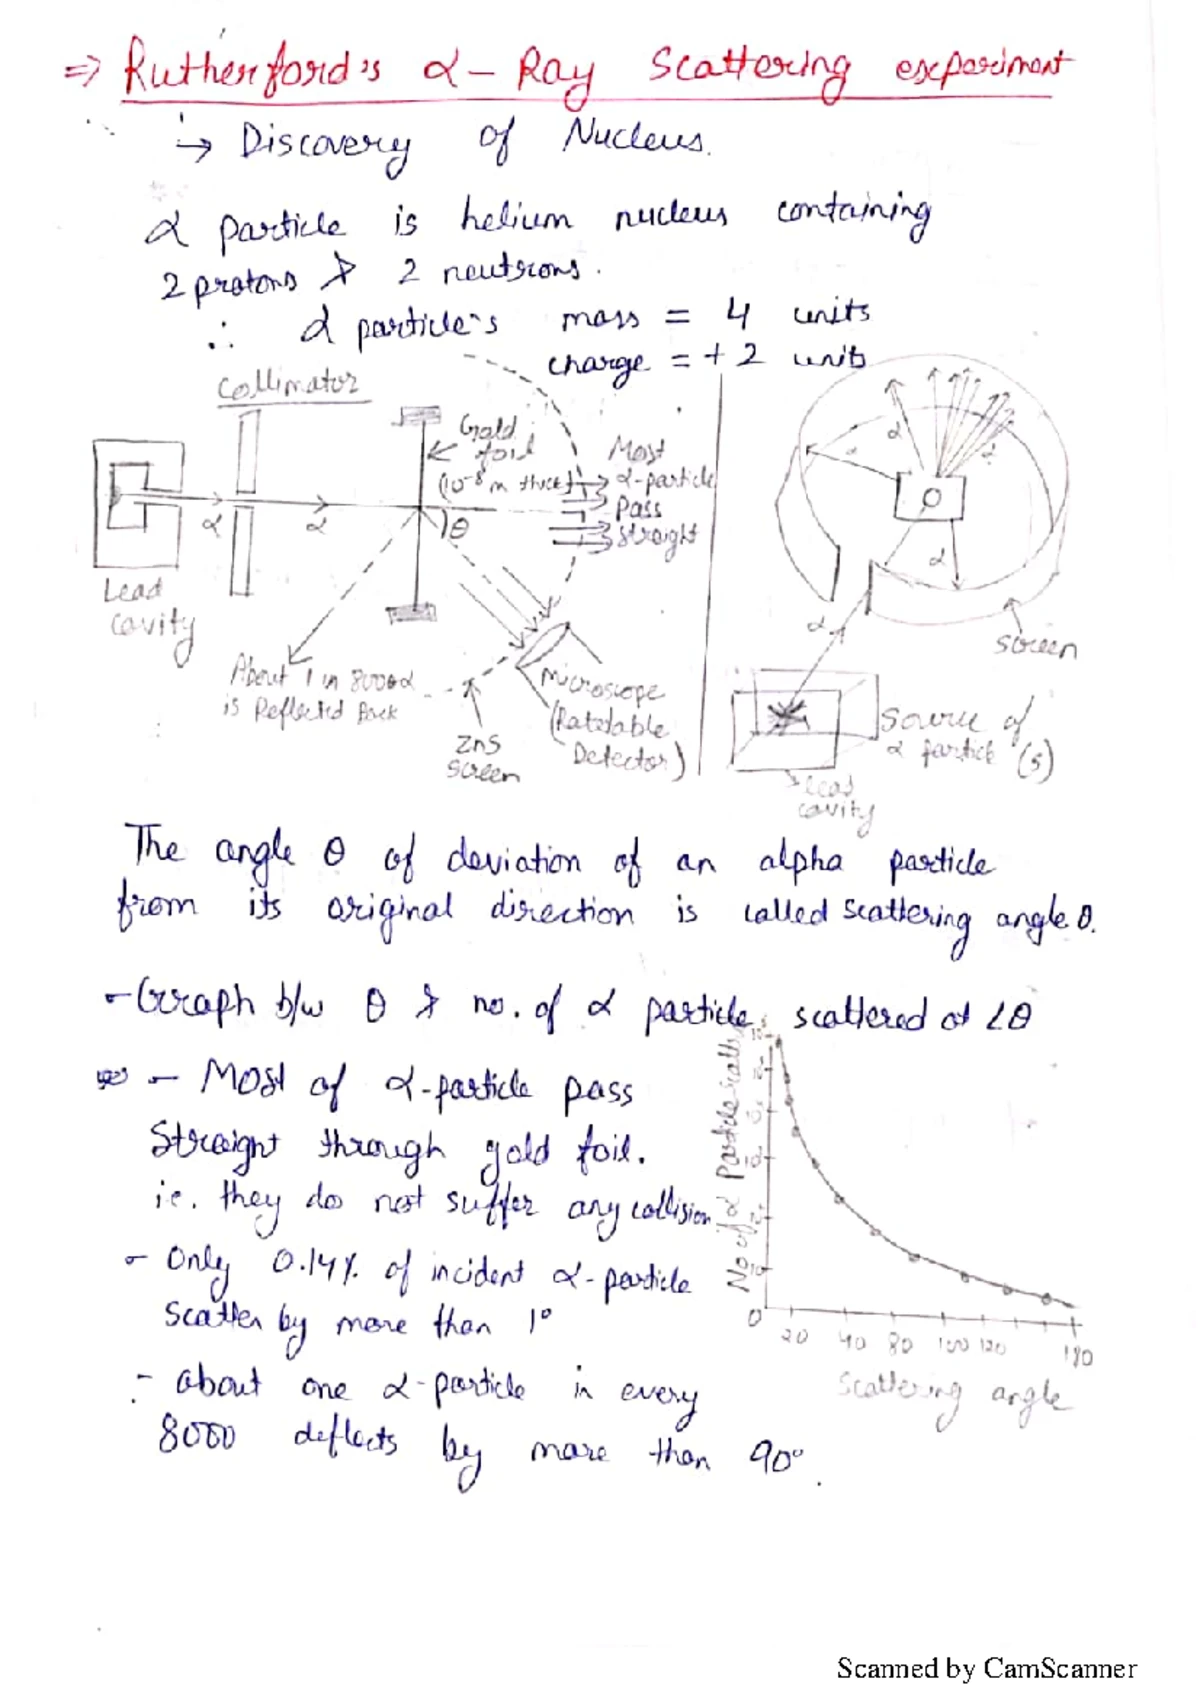 ⇒ Rutherford's α - Ray Scattering experiment
→ Discovery of Nucleus.
α particle is helium nucleus containing
2 protons & 2 neutrons.
∴ α particle's mass = 4 units
charge = + 2 units
Collimator
Gold foil
(10⁻⁸ m thick)
Most
α-particle
Pass
straight
α
α
θ
Lead
cavity
About 1 in 8000 α
is Reflected Back
ZnS
screen
Microscope
(Rotatable
Detector)
α
α
α
α
α
screen
Source of
α particle (s)
Lead
cavity
The angle θ of deviation of an alpha particle
from its original direction is called scattering angle θ.
- Graph b/w θ & no. of α particle, scattered at ∠θ
- Most of α-particle pass
straight through gold foil.
i.e. they do not suffer any collision
- Only 0.14% of incident α-particle
scatter by more than 1°
- about one α-particle in every
8000 deflects by more than 90°.
No of α Particle
0
20 40 80 100 120 180
Scattering angle
Scanned by CamScanner